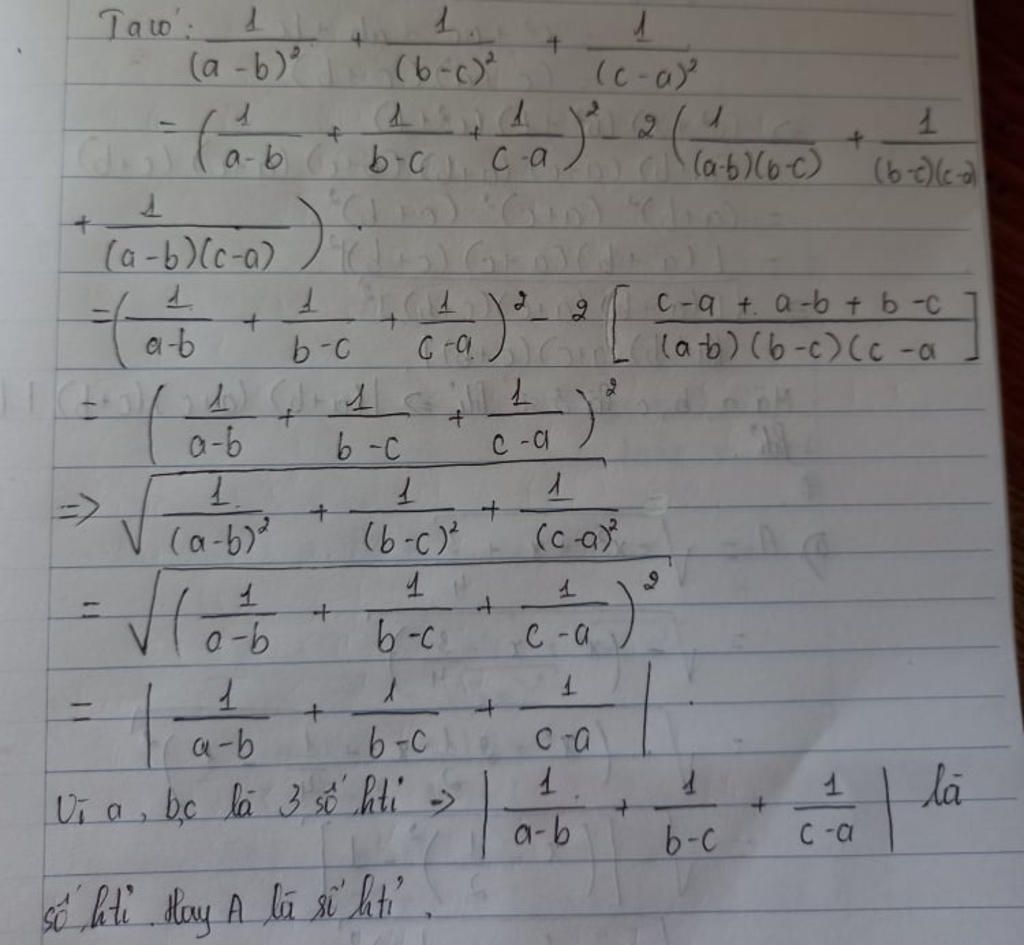 Ta có: 1/(a-b)² + 1/(b-c)² + 1/(c-a)²
= (1/(a-b) + 1/(b-c) + 1/(c-a))² - 2(1/((a-b)(b-c)) + 1/((b-c)(c-a)
+ 1/((a-b)(c-a))).
= (1/(a-b) + 1/(b-c) + 1/(c-a))² - 2[(c-a + a-b + b-c)/((a-b)(b-c)(c-a]
= (1/(a-b) + 1/(b-c) + 1/(c-a))²
=> √(1/(a-b)² + 1/(b-c)² + 1/(c-a)²)
= √((1/(a-b) + 1/(b-c) + 1/(c-a))²)
= |1/(a-b) + 1/(b-c) + 1/(c-a)|.
Vì a, b,c là 3 số hti => |1/(a-b) + 1/(b-c) + 1/(c-a)| là
số hti. Hay A là số hti.